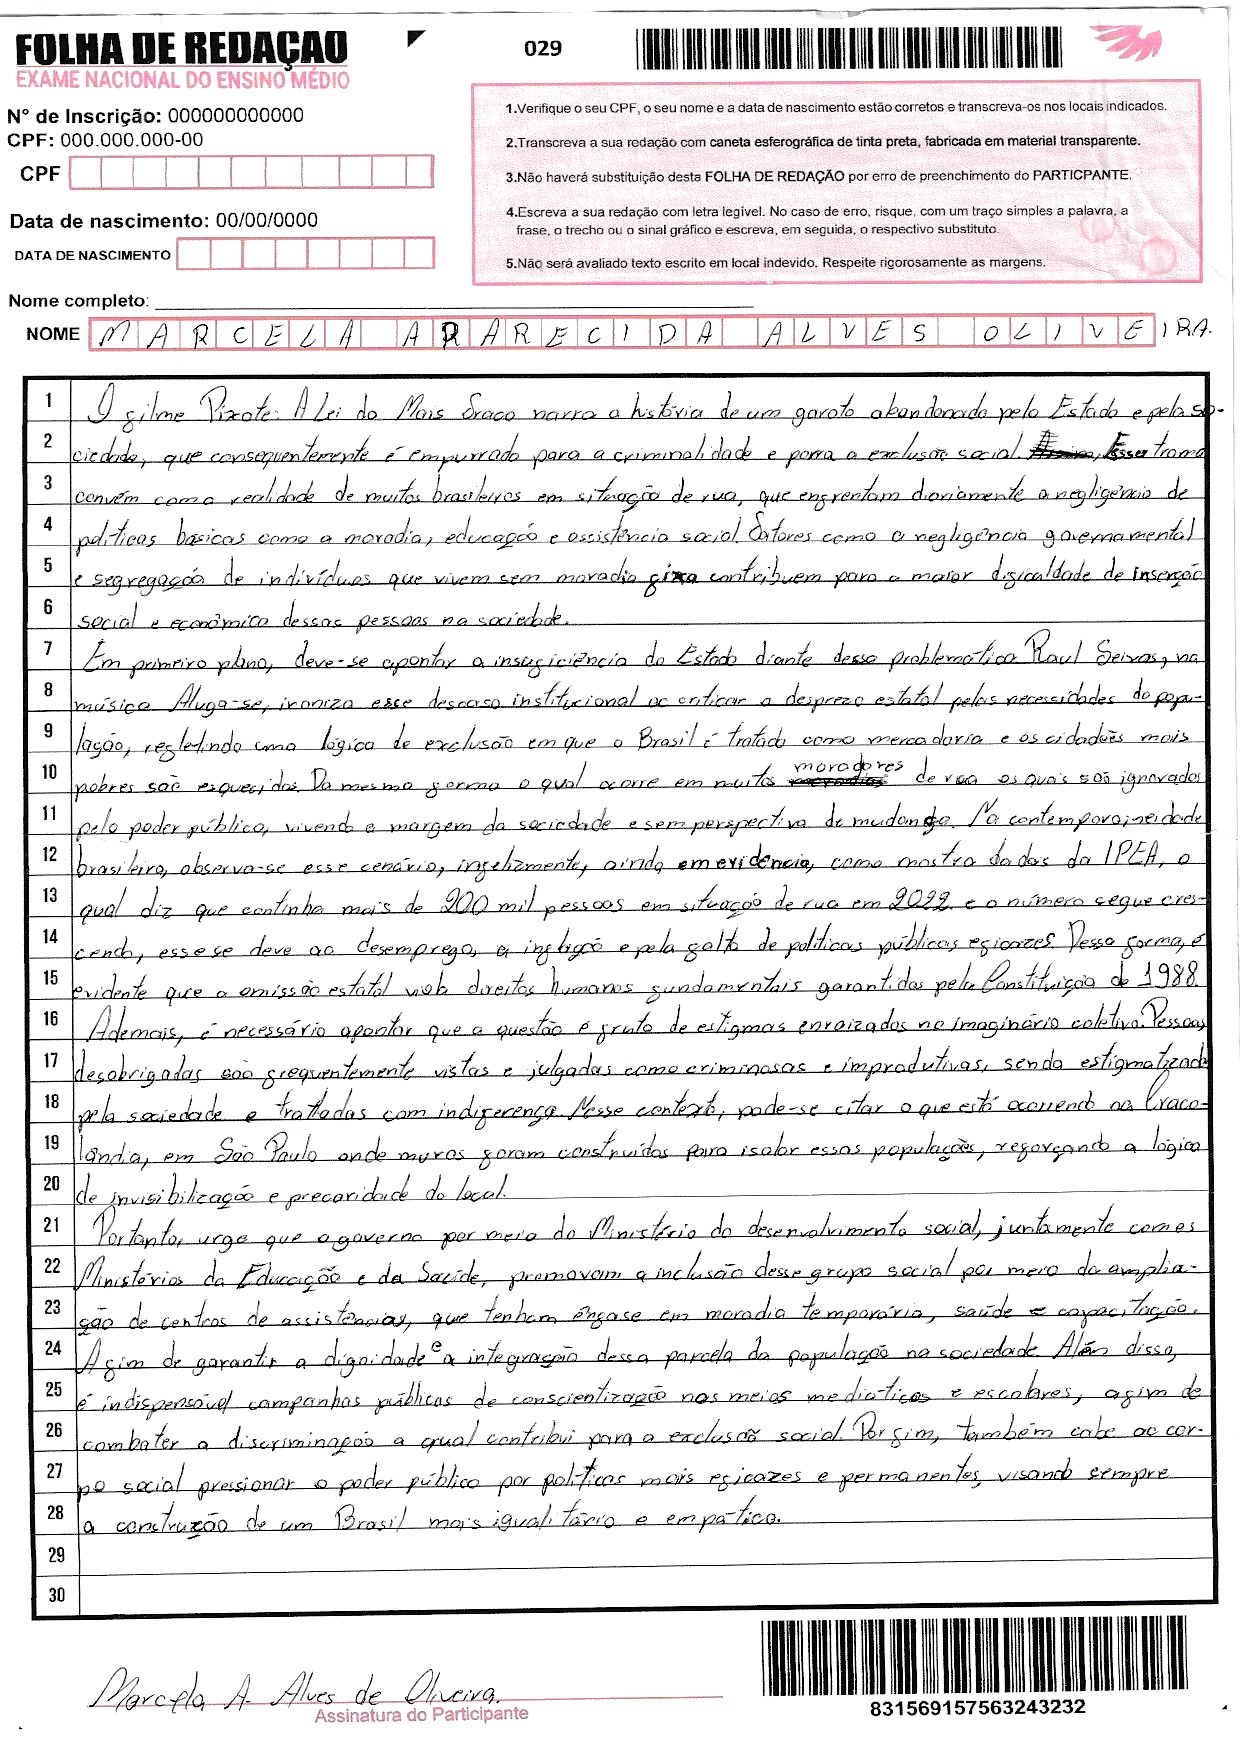 FOLHA DE REDAÇÃO
EXAME NACIONAL DO ENSINO MÉDIO
029
N° de Inscrição: 000000000000
CPF: 000.000.000-00
CPF
Data de nascimento: 00/00/0000
DATA DE NASCIMENTO
1.Verifique o seu CPF, o seu nome e a data de nascimento estão corretos e transcreva-os nos locais indicados.
2.Transcreva a sua redação com caneta esferográfica de tinta preta, fabricada em material transparente.
3.Não haverá substituição desta FOLHA DE REDAÇÃO por erro de preenchimento do PARTICPANTE.
4.Escreva a sua redação com letra legível. No caso de erro, risque, com um traço simples a palavra, a
frase, o trecho ou o sinal gráfico e escreva, em seguida, o respectivo substituto.
5.Não será avaliado texto escrito em local indevido. Respeite rigorosamente as margens.
Nome completo:
NOME MARCELA APARECIDA ALVES OLIVEIRA.
1 O filme Pixote: A Lei do Mais Fraco narra a história de um garoto abandonado pelo Estado e pela so-
2 ciedade, que consequentemente é empurrado para a criminalidade e parra a exclusão social. Essa trama
3 convém como realidade de muitos brasileiros em situação de rua, que enfrentam diariamente a negligência de
4 políticas básicas como a moradia, educação e assistência social. Fatores como a negligência governamental
5 e segregação de indivíduos que vivem sem moradia fixa contribuem para a maior dificuldade de inserção
6 social e econômico dessas pessoas na sociedade.
7 Em primeiro plano, deve-se apontar a insuficiência do Estado diante dessa problemática. Raul Seixas, na
8 música Aluga-se, ironiza esse descaso institucional ao criticar o desprezo estatal pelas necessidades da popu-
9 lação, refletindo uma lógica de exclusão em que o Brasil é tratado como mercadoria e os cidadões mais
10 pobres são esquecidos. Da mesma forma o qual ocorre em muitos moradores de rua os quais são ignorados
11 pelo poder público, vivendo a margem da sociedade e sem perspectiva de mudança. Na contemporaineidade
12 brasileira, observa-se esse cenário, infelizmente, ainda em evidência, como mostra dados da IPEA, o
13 qual diz que continha mais de 200 mil pessoas em situação de rua em 2022 e o número segue cres-
14 cendo, esse se deve ao desemprego, a inflação e pela falta de políticas públicas eficazes. Dessa forma, é
15 evidente que a omissão estatal viola direitos humanos fundamentais garantidos pela Constituição de 1988.
16 Ademais, é necessário apontar que a questão é fruto de estigmas enraizados no imaginário coletivo. Pessoas
17 desabrigadas são frequentemente vistas e julgadas como criminosas e improdutivas, sendo estigmatizada
18 pela sociedade e tratadas com indiferença. Nesse contexto, pode-se citar o que está ocorrendo na Craco-
19 lândia, em São Paulo onde muros foram construídos para isolar essas populações, reforçando a lógica
20 de invisibilização e precaridade do local.
21 Portanto, urge que o governo por meio do Ministério do desenvolvimento social, juntamente com es
22 Ministérios da Educação e da Saúde, promovam a inclusão desse grupo social por meio da amplia-
23 ção de centros de assistências, que tenham ênfase em moradia temporária, saúde e capacitação.
24 Afim de garantir a dignidade e a integração dessa parcela da população na sociedade. Além disso,
25 é indispensável campanhas públicas de conscientização nos meios mediáticos e escolares, afim de
26 combater a discriminação a qual contribui para a exclusão social. Por fim, também cabe ao cor-
27 po social pressionar o poder público por políticas mais eficazes e permanentes, visando sempre
28 a construção de um Brasil mais igualitário e empático.
29
30
Marcela A. Alves de Oliveira.
Assinatura do Participante
831569157563243232